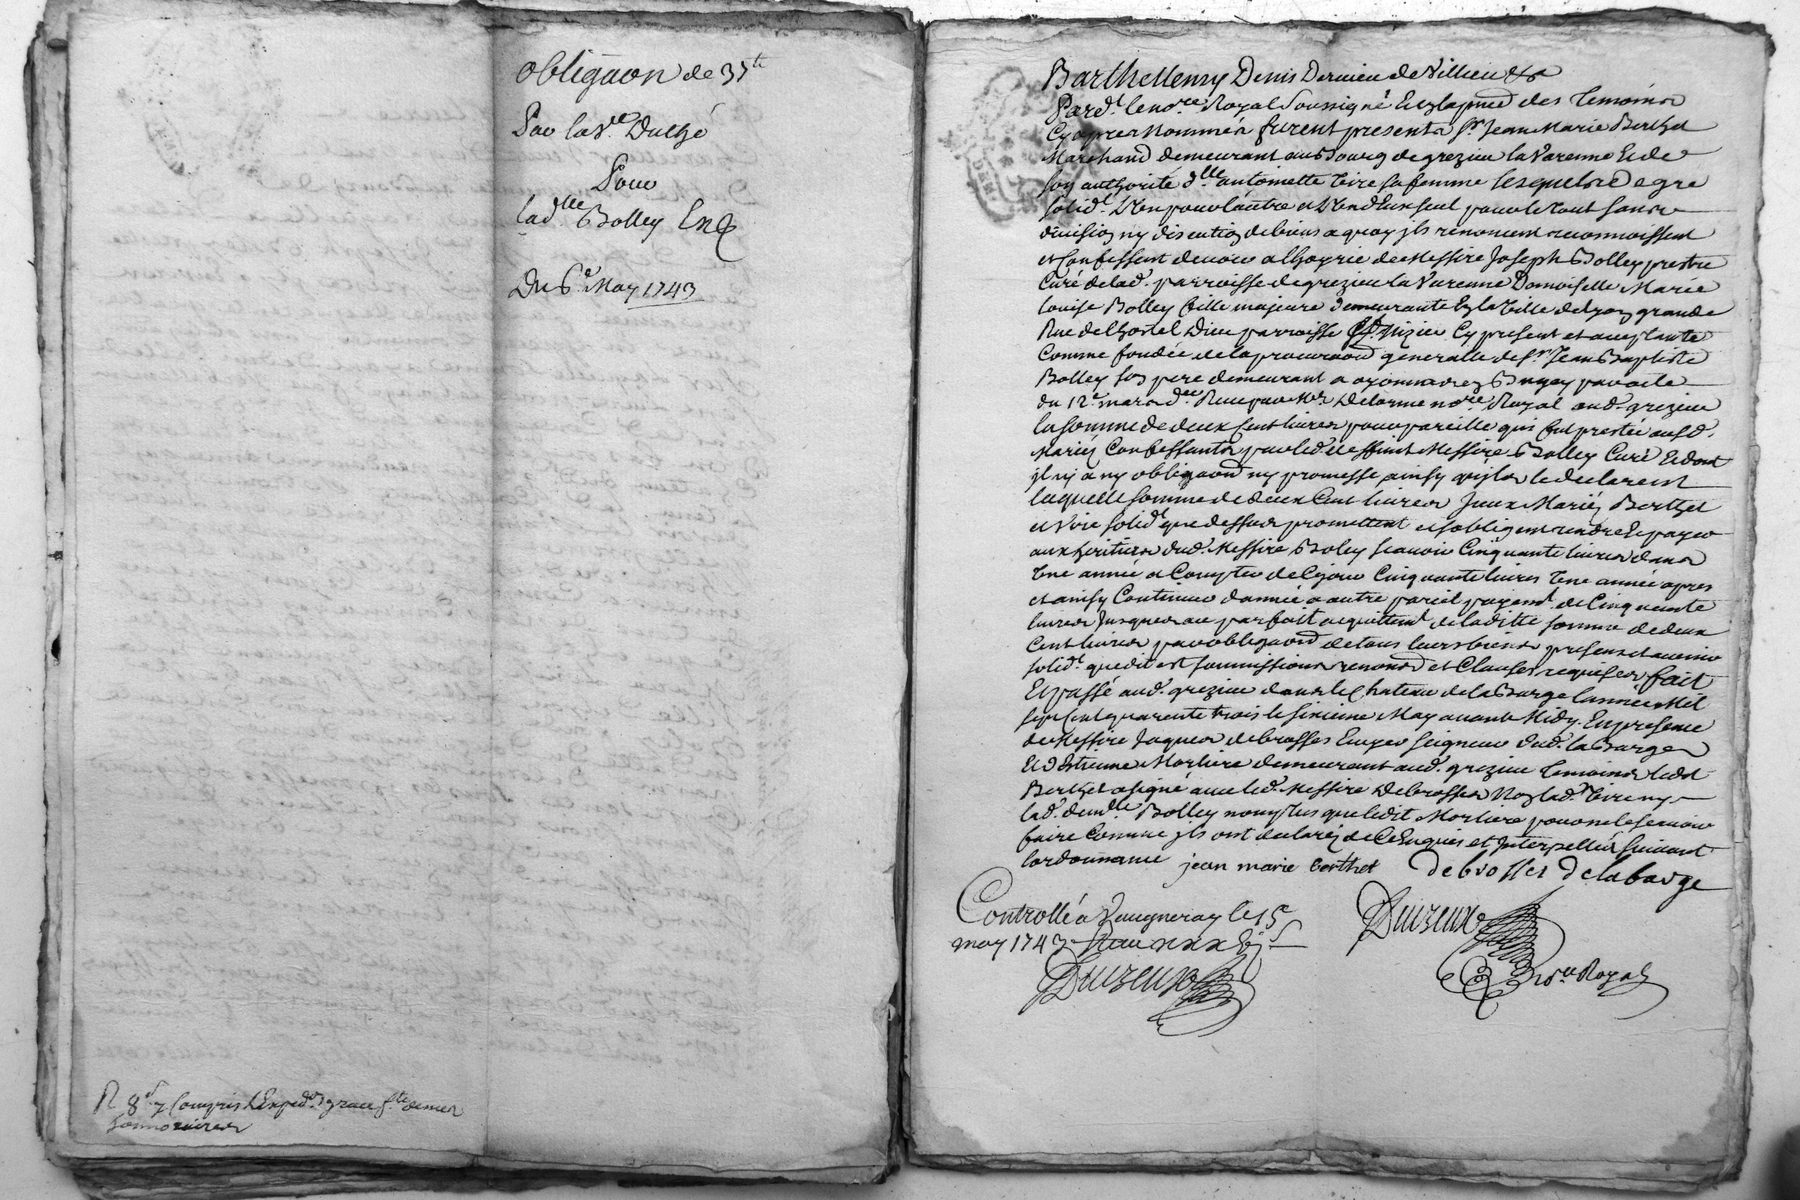 obligaon de 37 tt
Par la Ve. Duchê
Pour
la dlle Bolley
Du 6e. May 1743
R 8 s. y Compris L'Exped.
honnoraires
Barthellemy Denis Dervieu de Villieu &a
Pard.t le nore Royal Soussigné Et En la pnce des Temoins
Cy apres Nommés furent presents Sr. Jean Marie Berthet
Marchand demeurant au Bourg de grezieu la Varenne Et de
son authorité dlle antoinette sa femme lesquels de gre
solid.t L'un pour l'autre et L'un d'Eux seul pour le tout sans
division ny discution de biens a quoy jls renoncent reconnoissent
et Confessent devoir a l'hoyrie de Messire Joseph Bolley prestre
Curé de lad. parroisse de grezieu la Varenne Domoiselle Marie
louise Bolley fille majeure demeurante En la Ville de Lyon grande
Rue de l'hostel Dieu parroisse St. Nizier Cy presente et acceptante
Comme fondée de la procuraon generalle de Sr. Jean Baptiste
Bolley son pere demeurant a oyonna en Bugey par acte
du 12e. mars der. Receu par Me. Delorme nore Royal aud. grezieu
la somme de deux Cent livres pour pareille qui fut prestée ausd.
Mariés Confessants par led. deffunt Messire Bolley Curé Et dont
jl n'y a ny obligaon ny promesse ainsy qu'jls le declarent
laquelle somme de deux Cent livres jceux Mariés Berthet
et solid.t que dessus promettent et s'obligent rendre Et payer
aux heritiers dud. Messire Boley scavoir Cinquante livres dans
Une année a Compter de Ce jour Cinquante livres Une année apres
et ainsy Continuer d'année a autre pareil payem.t de Cinquante
livres jusques au parfait acquittem.t de la ditte somme de deux
Cent livres par obligaon de tous leurs biens presens et avenir
solid.t que dit est soumissions renonc.ons et Clauses requises fait
Et passé aud. grezieu dans le Chateau de la Barge l'année Mil
sept Cent quarente trois le sixieme May avant Midy. En presence
de Messire Jaques debrosses Ecuyer seigneur dud. la Barge
Et d'Estienne Morliere demeurant aud. grezieu Temoins ledit
Berthet a signé avec led. Messire Debrosses Non lad. ny
lad. demlle Bolley non plus que ledit Morliere pour ne le scavoir
faire Comme jls ont declarés de Ce Enquis et Interpellés suivant
l'ordonnance jean marie berthet debrosses de la barge
Controllé a Vaugneray le 15e
may 1743
Duizeux
Duizeux
nore Royal